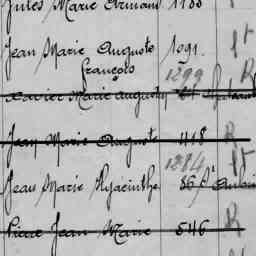 Jules Marie Armand 1188
Jean Marie Auguste 1091. St
François
1299 R
Xavier Marie Auguste
Jean Marie Auguste 1118 R
1284 St
Jean Marie Hyacinthe 86
Pierre Jean Marie 546 R